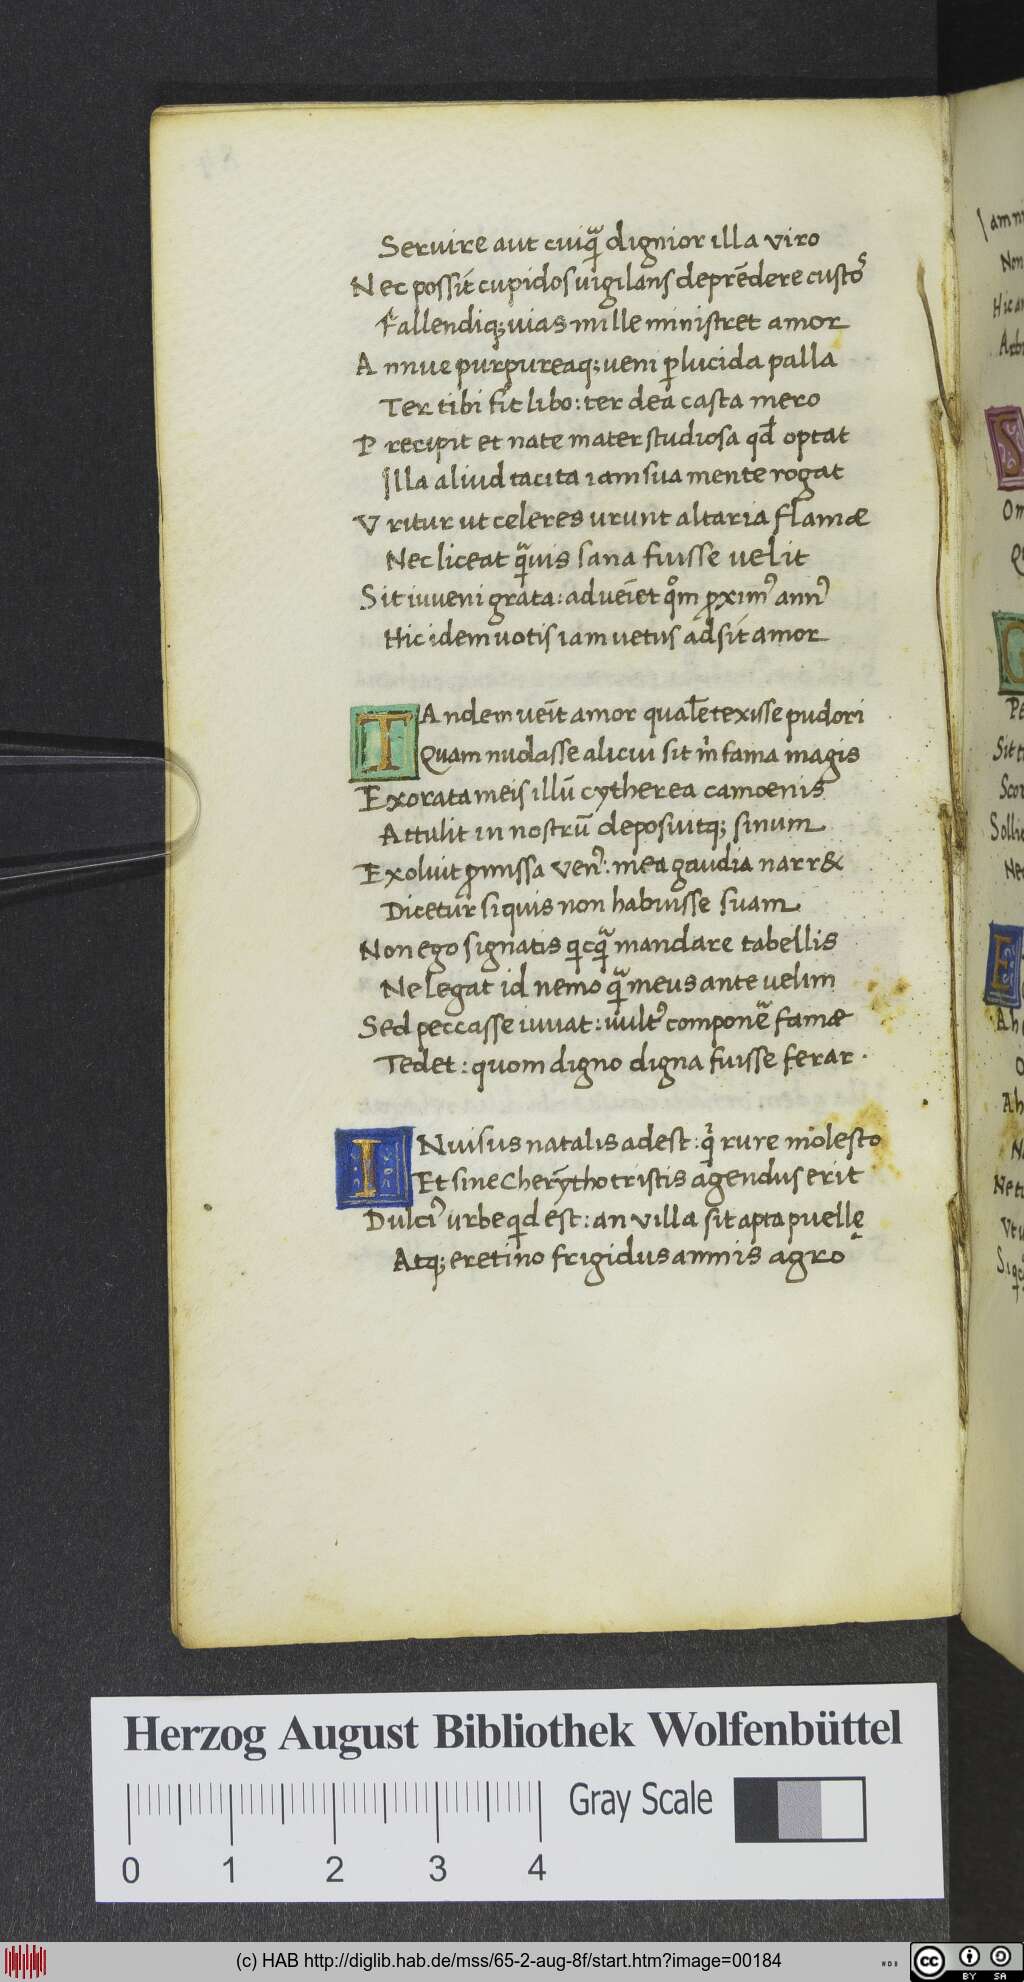 Seruire aut cuiqᷓ dignior illa viro
Nec possit́ cupidos uigilans depr̄endere custoś
Fallendiqꝫ uias mille ministret amor
Annue purpureaqꝫ ueni ꝑlucida palla
Ter tibi fit libo: ter dea casta mero
Precipit et nate mater studiosa qđ optat
Illa aliud tacita iam sua mente rogat
Vritur ut celeres urunt altaria flamæ
Nec liceat qᷓuis sana fuisse uelit
Sit iuueni grata: adueīet qͦm ꝓximꝰ annꝰ
Hic idem uotis iam uetus adsit amor
TAndem ueīt amor qual̄ etexisse pudori
Quam nudasse alicui sit m̓ fama magis
Exorata meis illū cytherea camoenis
Attulit in nostrū deposuitqꝫ sinum
Exoluit ꝓmissa venꝰ: mea gaudia narr&
Dicetur siquis non habuisse suam
Non ego signatis qͥcqᷓ mandare tabellis
Ne legat id nemo qᷓ meus ante uelim
Sed peccasse iuuat: uultꝰ componeᷓ famæ
Tedet: quom digno digna fuisse ferar.
INuisus natalis adest: qͥ rure molesto
Et sine Cherȳtho tristis agendus erit
Dulciꝰ urbe qͥd est: an villa sit apta puellę
Atqꝫ eretino frigidus amnis agro
Iamni
Non
Hic a
Arb
S
Om
Q
Pe
Sit t
Scor
Sollic
Nec
E
Ah
O
Ah
N
Ne t
Vt u
Siqͥ
Herzog August Bibliothek Wolfenbüttel
Gray Scale
0 1 2 3 4
(c) HAB http://diglib.hab.de/mss/65-2-aug-8f/start.htm?image=00184
cc BY SA